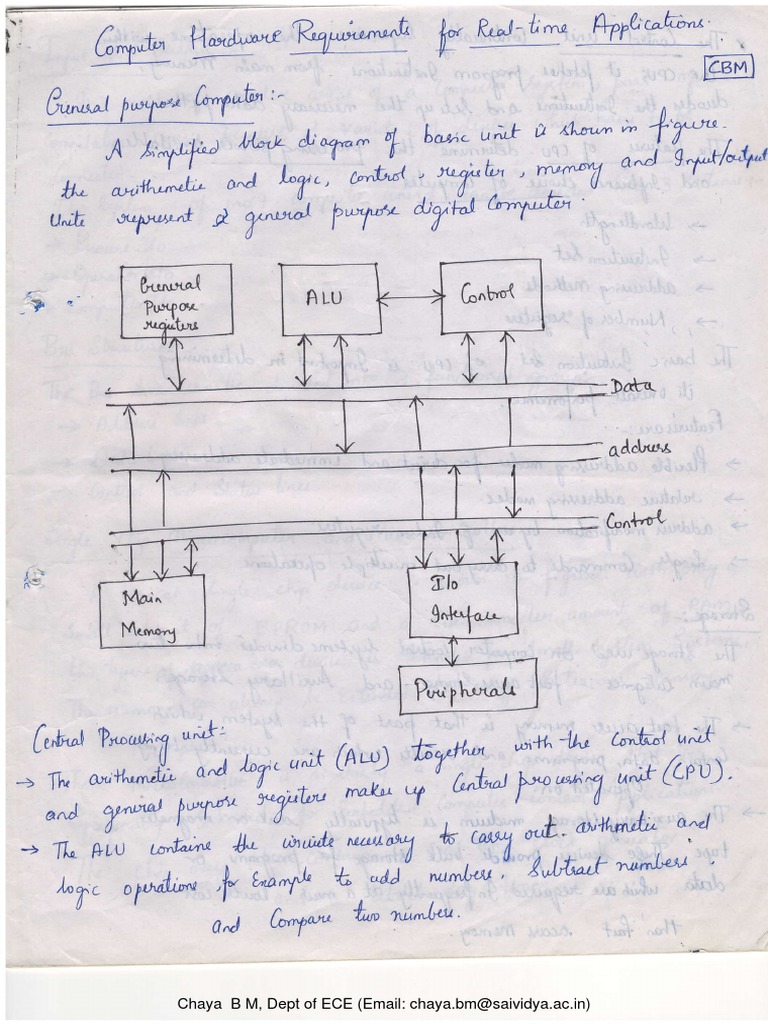 Computer Hardware Requirements for Real-time Applications.
CBM
General purpose Computer:-
A simplified block diagram of basic unit is shown in figure.
the arithemetic and logic, control, register, memory and Input/output
Units represent a general purpose digital Computer.
General
Purpose
registers
ALU
Control
Data
address
Control
Main
Memory
I/o
Interface
Peripherals
Central Processing unit:-
→ The arithemetic and logic unit (ALU) together with the Control unit
and general purpose registers makes up Central processing unit (CPU).
→ The ALU contains the circuits necessary to carry out arithmetic and
logic operations, for Example to add numbers, Subtract numbers
and Compare two numbers.
Chaya B M, Dept of ECE (Email: chaya.bm@saividya.ac.in)